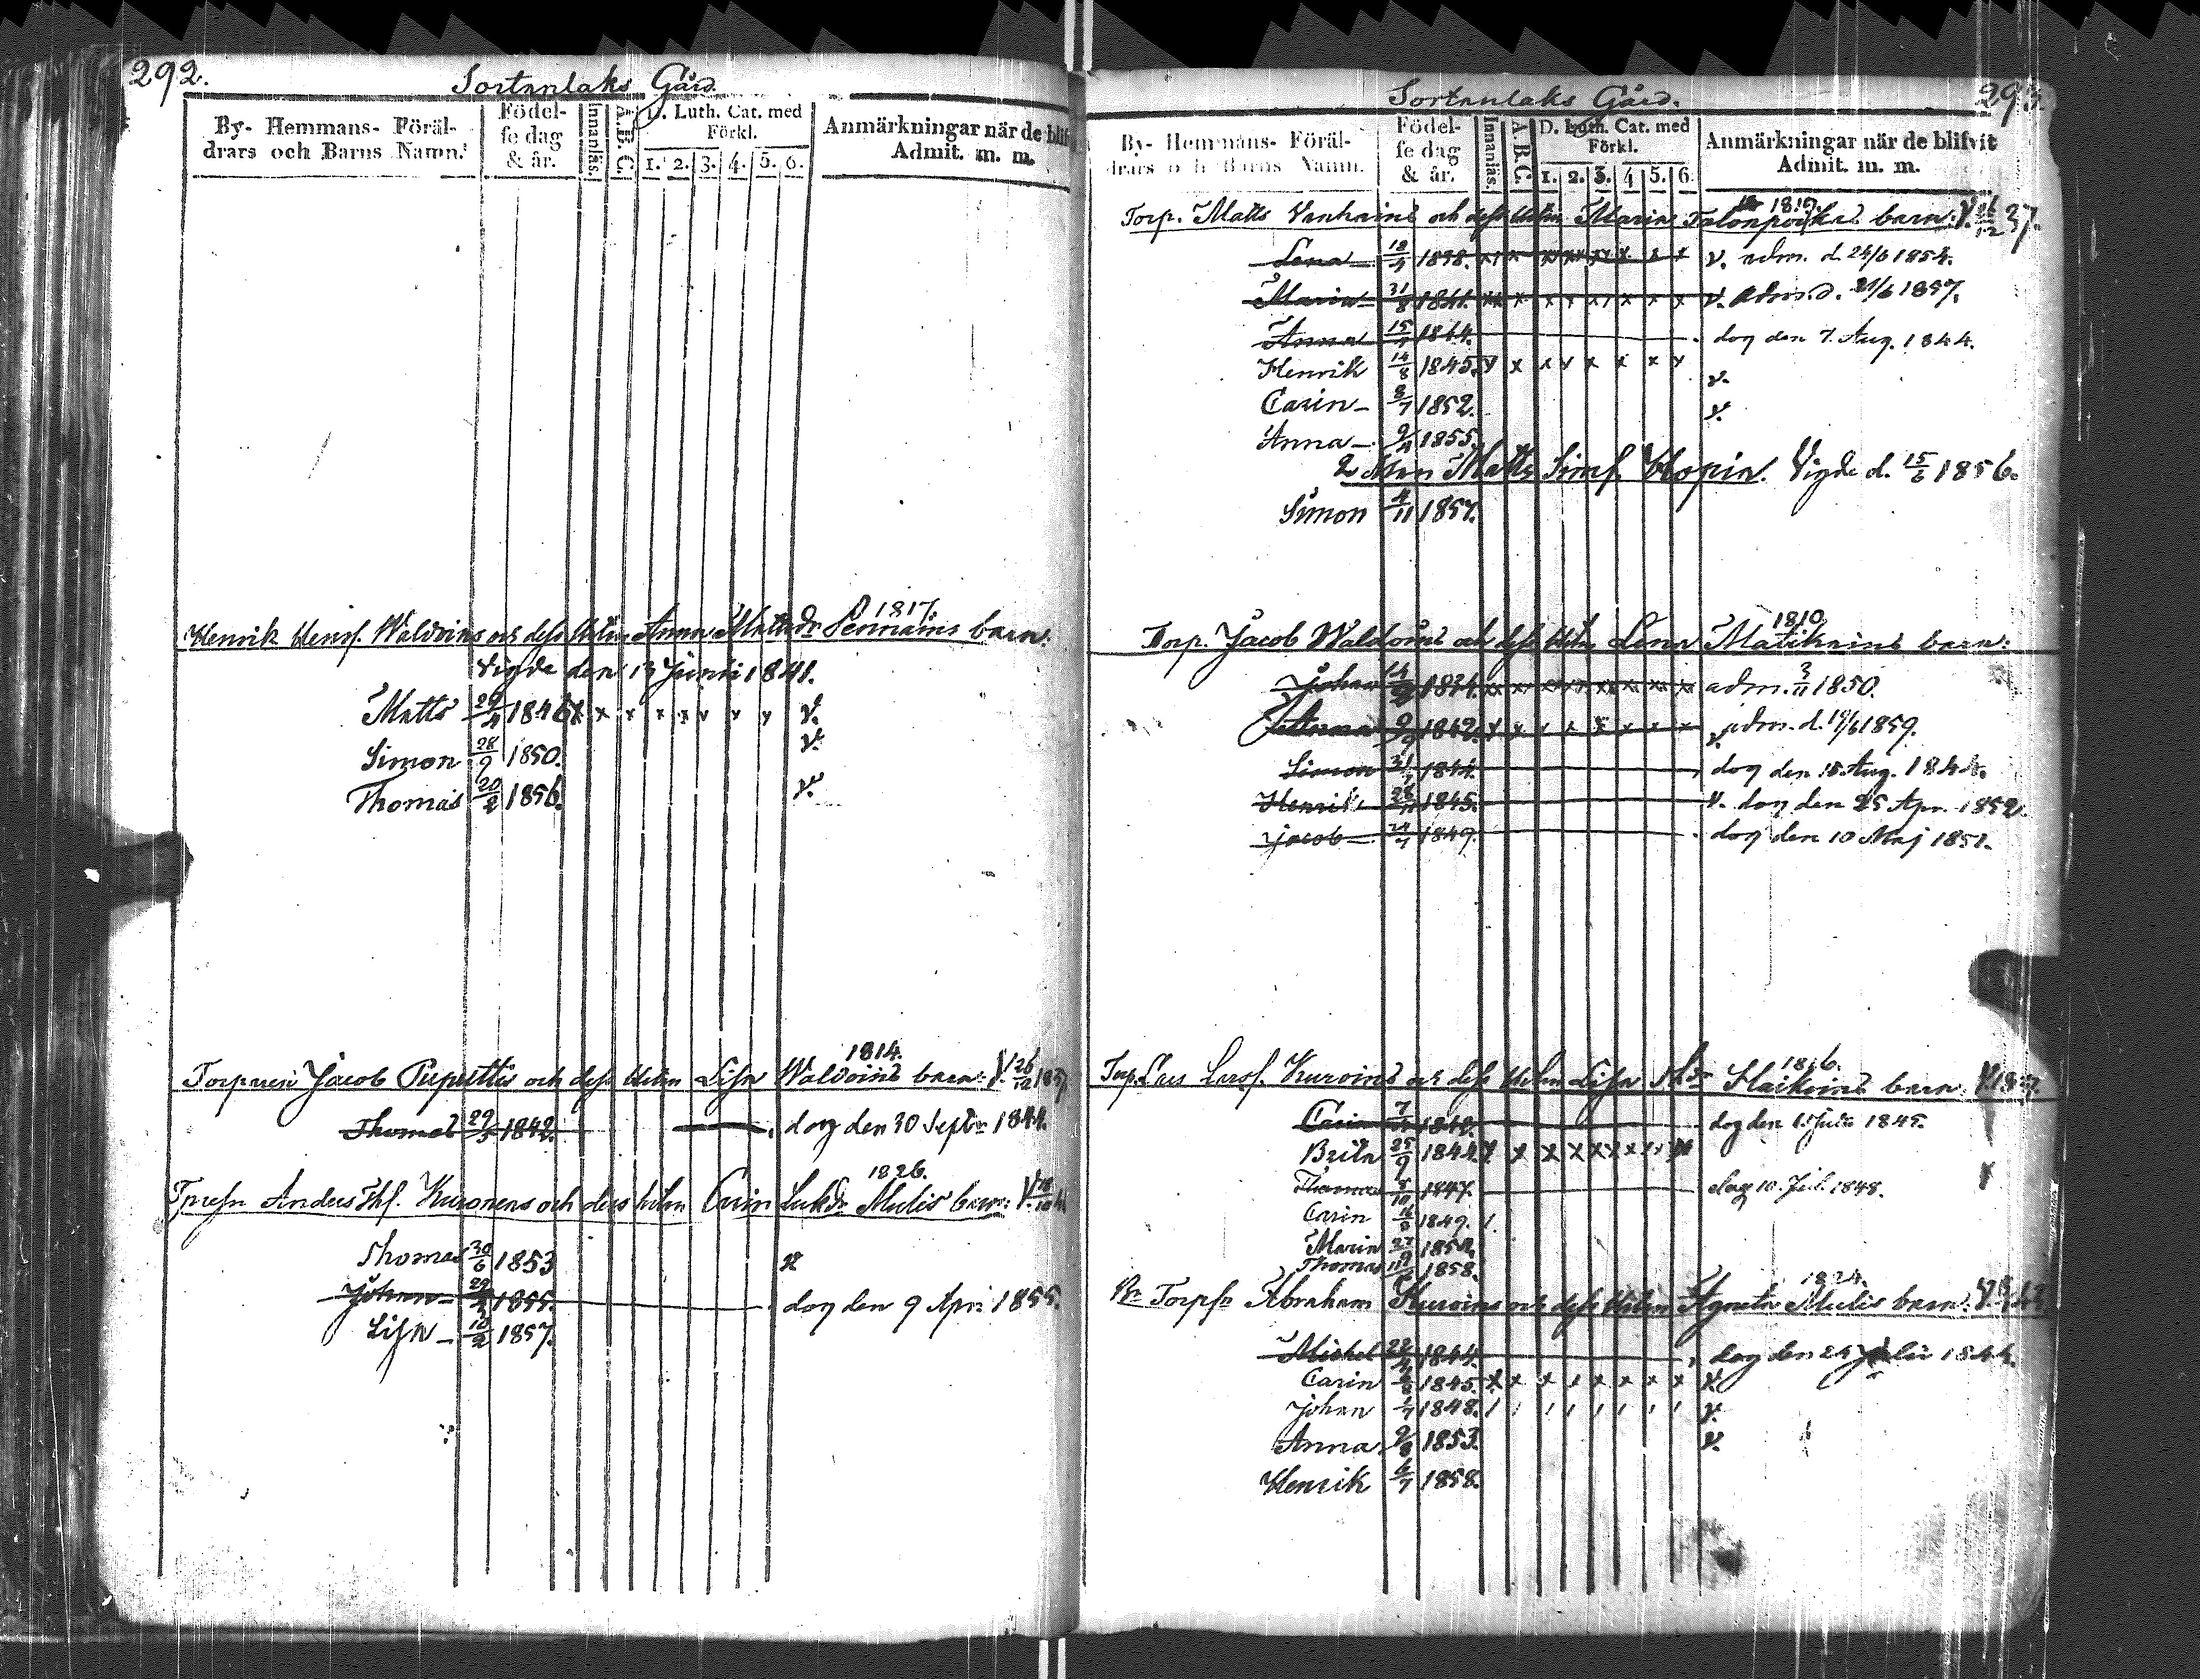 292.
Sortanlaks Gård.
By- Hemmans- Föräl-
drars och Barns Namn.
Födel-
se dag
& år.
Innanläs.
A. B. C.
D. Luth. Cat. med
Förkl.
1. 2. 3. 4. 5. 6.
Anmärkningar när de blifvit
Admit. m. m.
1817.
Henrik Henrs. Waldoins och dess hustru Anna Mattsdr Permains barn.
Vigde den 13 Junii 1841.
Matts 29/4 1846 x x x x x x x x v.
Simon 28/9 1850. v.
Thomas 20/2 1856. v.
1814.
Torparen Jacob Puputtis och dess hustru Lisa Waldoins barn: V. 26/12 1837
Thomas 29/5 1842. dog den 30 Septbr 1844.
1826.
Anders Ths. Kuronens och dess hustru Carin Luk.dr Mulis barn:
Thomas 30/6 1853 v
Johan 1855. dog den 9 Apr. 1855.
Lisa 10/2 1857.
Sortanlaks Gård.
293.
By- Hemmans- Föräl-
drars och Barns Namn.
Födel-
se dag
& år.
Innanläs.
A. B. C.
D. Luth. Cat. med
Förkl.
1. 2. 3. 4 5. 6.
Anmärkningar när de blifvit
Admit. m. m.
Torp. Matts Vanhains och dess hustru Maria Talonpoikas barn: V. 26/12 37.
Lena 18/4 1838. x x x x x x x x v. adm. d. 24/6 1854.
Maria 31/8 1841. x x x x x x x x v. adm. d. 21/6 1857.
Anna 15/7 1844. dog den 7. Aug. 1844.
Henrik 14/8 1845. x x x x x x x x v.
Carin 8/7 1852. v.
Anna 1855.
2 Man Matts Sims. Hopia. Vigde d. 15/6 1856.
Simon 4/11 1857.
1810.
Torp. Jacob Waldoins och dess hustru Lena Matikains barn:
Johan 1834. x x x x x x x x adm. 3/11 1850.
Anna 9/9 1842. x x x x x x x x v. adm. d. 19/6 1859.
Simon 1844. dog den 15 Aug. 1844.
Henrik 1845. v. dog den 25 Apr. 1852.
Jacob 1849. dog den 10 Maj 1851.
1816.
Torp. Lars Larss. Kuroins och dess hustru Lisa barn:
Carin 1842. dog den 1. Juli 1845.
Brita 25/9 1844. x x x x x x x x
Thomas 8/10 1847. dog 10. Juli 1848.
Carin 16/8 1849.
Maria 1852.
Thomas 1858.
1824.
Br Torps Abraham Kuroins och dess hustru Agneta Mulis barn:
Michel 1844. dog den 24 Julii 1844.
Carin 1845. x x x x x x x x v.
Johan 1/7 1848. v.
Anna 9/8 1853. v.
Henrik 6/7 1858.